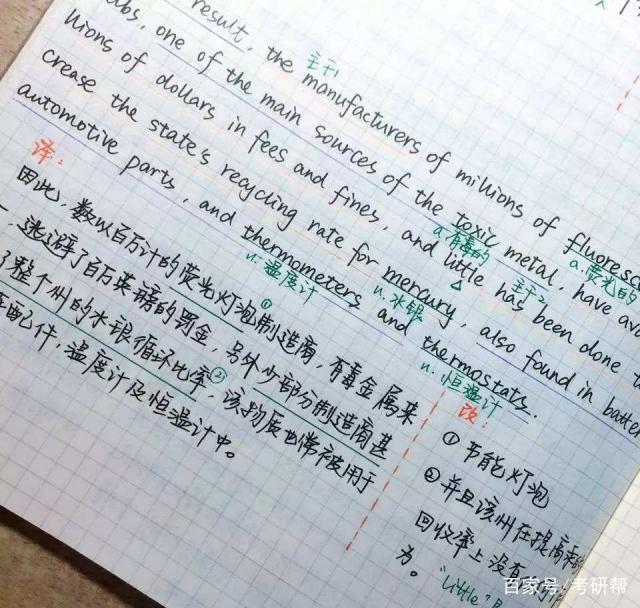 result, the manufacturers of millions of
主干1
one of the main sources of the toxic metal, have
a.有毒的
a.荧光的
llions of dollars in fees and fines, and little has been done
主干2
crease the state's recycling rate for mercury, also found in
n.水银
automotive parts, and thermometers and thermostats.
n.温度计
n.恒温计
译:
因此,数以百万计的荧光灯泡制造商,有毒金属来
①
逃避了百万英镑的罚金,另外少部分制造商甚
了整个州的水银循环比率,该物质也常被用于
②
配件,温度计及恒温计中。
改:
① 节能灯泡
② 并且该州在提高
回收率上没有
为。
"little"
百家号/考研帮